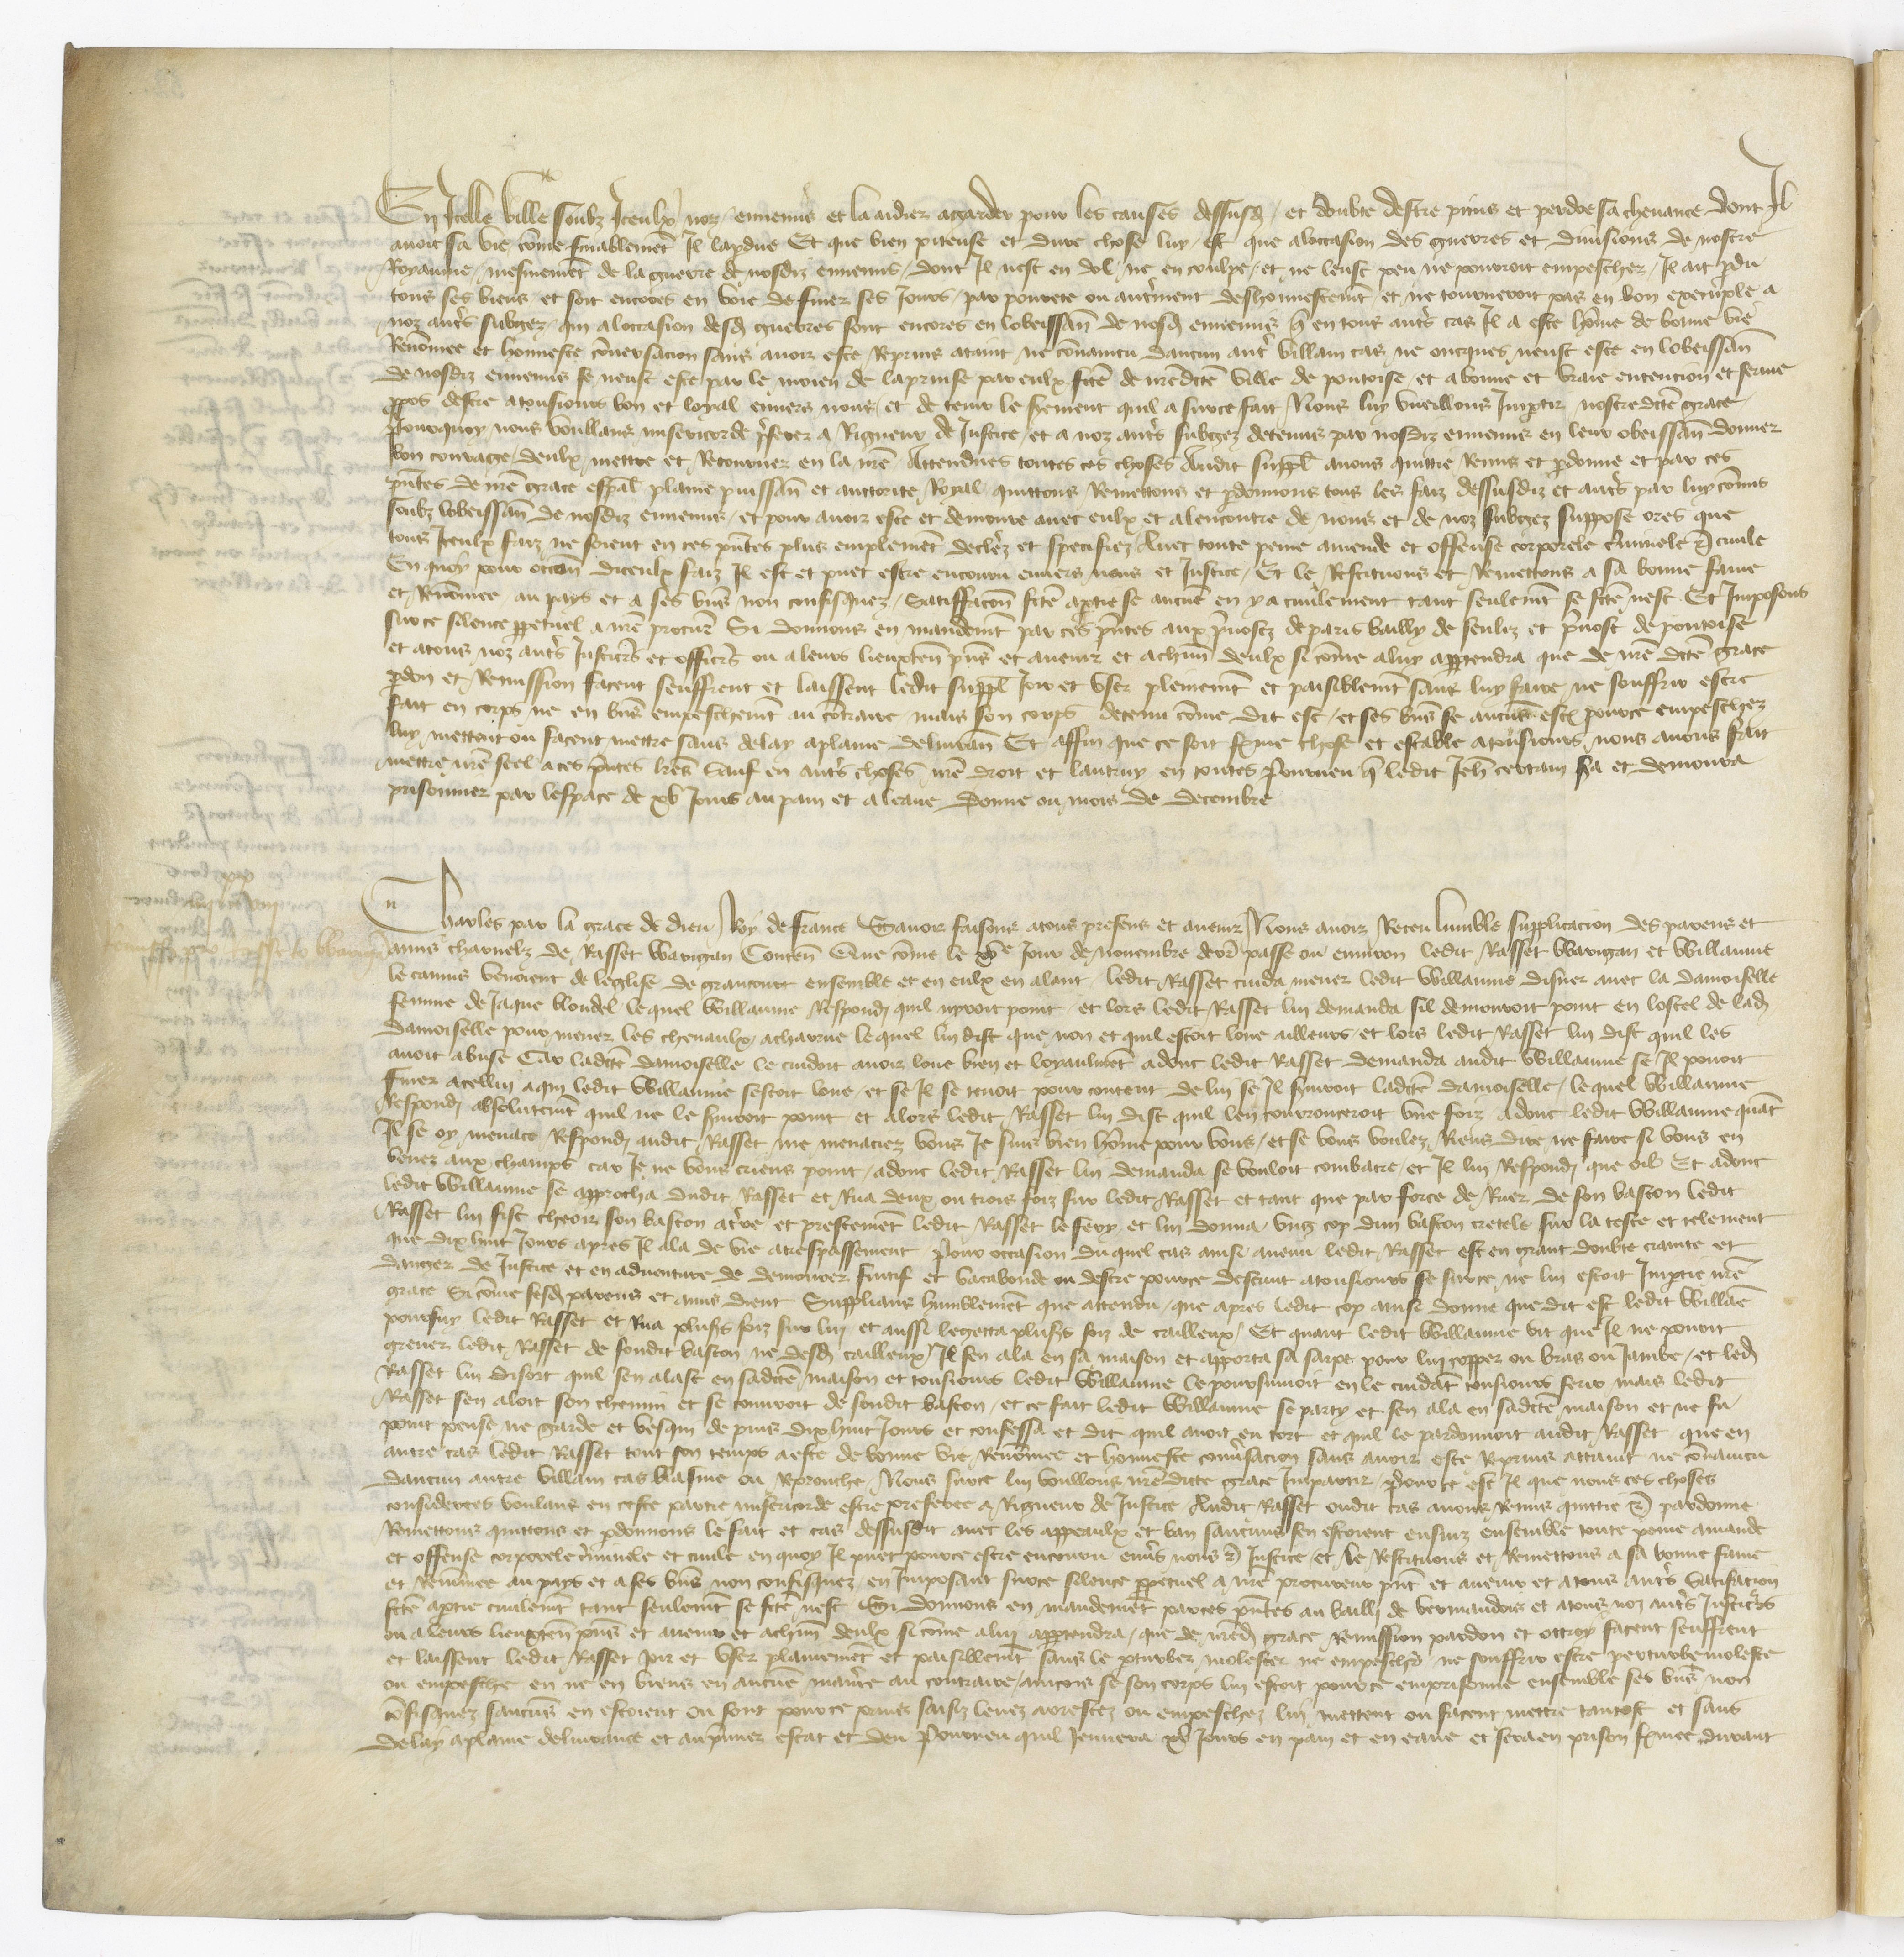 En Icelle ville soubz Iceulx noz ennemis et la aidier a garder pour les causes dessusd et doubte destre prins et perdre sa chevance dont Il
avoit sa vie cōme finablemēt Il la pdue Et que bien piteuse et dure chose luy est que aloccasion des guerres et divisions de nostre
Royaume mesmemēt de la guerre de nosdiz ennemis dont Il nest en dol ne en coulpe et ne leust peu ne pourroit empescher Il ait pdu
tous ses biens et soit encores en voie de finer ses Jours par povrete ou autrement deshonnestemēt et ne tourneroit pas en bon exemple a
noz autrs subgez qui aloccasion desd guerres sont encores en lobeissan de nosd ennemis q en tous autrs cas Il a este hōme de bonne vie
Renōmee et honneste cōversacion sans avoir este Reprins ataint ne cōvaincu daucun autr villain cas ne oncques neust este en lobeissan
de nosdiz ennemis se neust este par le moien de la prinse par eulx fcte de nredcte ville de pontoise et a bonne et vraie entencion et ferme
ppos destre atousiours bon et loyal envers nous et de tenir le serment quil a surce fait Nous luy vueillons Impartir nostredcte grace
Pourquoy nous voullans misericorde pferer a Rigueur de Justice et a noz autrs subgez detenus par nosdiz ennemis en leur obeissan donner
bon courage deulx mettre et Retourner en la nre Attendues toutes ces choses Audit suppl avons quittie Remis et pdonne et par ces
pntes de nre grace espal plaine puissan et auctorite Royal quittons Remettons et pdonnons tous les faiz dessusdiz et autrs par luy cōmis
soubz lobeissan de nosdiz ennemis et pour avoir este et demoure avec eulx et alencontre de nous et de noz subgez suppose ores que
tous Iceulx faiz ne soient en ces pntes plus emplemēt declerez et specifiez Avec toute peine amende et offense corporele criminele et civile
En quoy pour occon diceulx faiz Il est et puet estre encouru envers nous et Justice Et le Restituons et Remettons a sa bonne fame
et Renōmee au pays et a ses bns non confisquez Satisfacon fcte aptie se aucune en y a civilement tant seulemēt se fcte nest Et Imposons
surce silence ppetuel a nre procur Si donnons en mandemēt par ces pntes aux prevostz de paris bailly de senliz et prevost de pontoise
et atous noz autrs Justicrs et officrs ou aleurs lieuxten pns et avenir et achun deulx si cōme aluy appartendra que de nre dcte grace
pdon et Remission facent seuffrent et laissent ledit suppl Joir et user plainemēt et paisiblemēt sans luy faire ne souffrir estre
fait en corps ne en bns empeschemēt au cōtraire mais son corps detenu cōme dit est et ses bns se aucuns estoient pource empeschez
luy mettent ou facent mettre sans delay aplaine delivran Et affin que ce soit ferme chose et estable atousiours nous avons fait
mettre nre seel a ces pntes lres Sauf en autrs choses nre droit et lautruy en toutes Pourveu q ledit Jeh certain sera et demoura
prisonnier par lespace de xv Jours au pain et a leaue Donne ou mois de decembre
Charles par la grace de dieu Roy de france Savoir faisons atous presens et avenir Nous avoir Receu lumble supplicacion des parens et
amis charnelz de Rasset Warigan Conten Que cōme le xe Jour de Novembre derr passe ou environ ledit Rasset Warigan et Willaume
le camus venoient de leglise de grancourt ensemble et en eulx en alant ledit Rasset cuida mener ledit Willaume disner avec la damoiselle
femme de Jaque blondel lequel Willaume Respondi quil nyroit point et lors ledit Rasset lui demanda sil demouroit point en lostel de lad
damoiselle pour mener les chevaulx acharue lequel lui dist que non et quil estoit loue ailleurs et lors ledit Rasset lui dist quil les
avoit abuse Car ladcte damoiselle le cuidoit avoir loue bien et loyaulmēt adonc ledit Rasset demanda audit Willaume se Il povoit
finer acellui a qui ledit Willaume sestoit loue et se Il se tenoit pour content de lui se Il servoit ladcte damoiselle lequel Willaume
Respondi absolutemēt quil ne le serviroit point et alors ledit Rasset lui dist quil len courrouceroit une foiz adonc ledit Willaume quāt
Il se oy menace Respondi audit Rasset me menaciez vous Je suis bien hōme pour vous et se vous voulez Riens dire ne faire si vous en
venez aux champs car Je ne vous criens point adonc ledit Rasset lui demanda se vouloit combatre et Il lui Respondi que oil Et adonc
ledit Willaume se approcha dudit Rasset et Rua deux ou trois foiz sur ledit Rasset et tant que par force de Ruer de son baston ledit
Rasset lui fist cheoir son baston aterre et prestemēt ledit Rasset le fery et lui donna ung cop dun baston cretele sur la teste et telement
que dix huit Jours apres Il ala de vie atrespassement Pour occasion du quel cas ainsi avenu ledit Rasset est en grant doubte crainte et
danger de Justice et en adventure de demourer fuitif et vacabonde ou destre pource destruit atousiours se surce ne lui estoit Imptie nre
grace Si cōme sesd parens et amis dient Supplians humblemēt que attendu que apres ledit cop ainsi donne que dit est ledit Willae
poursuy ledit Rasset et Rua plusrs foiz sur lui et aussi le getta plusrs foiz de cailleux Et quant ledit Willaume vit que Il ne povoit
grever ledit Rasset de sondit baston ne desd cailleux Il sen ala en sa maison et apporta sa sarpe pour lui copper ou bras ou Jambe et led
Rasset lui disoit quil sen alast en sadcte maison et tousiours ledit Willaume le poursuivoit en le cuidāt tousiours ferir mais ledit
Rasset sen aloit son chemin et se couvroit de sondit baston et ce fait ledit Willaume se party et sen ala en sadcte maison et ne fu
point pense ne garde et vesqui depuis dix huit Jours et confessa et dit quil avoit eu tort et quil le pardonnoit audit Rasset que en
autre cas ledit Rasset tout son temps a este de bonne vie Renōmee et honneste conversacion sans avoir este Reprins attaint ne cōvaincu
daucun autre villain cas blasme ou Reprouche Nous surce lui voullons nredicte grace Impartir Pour ce est Il que nous ces choses
considerees voulans en ceste partie misericorde estre preferee a Rigueur de Justice Audit Rasset oudit cas avons Remis quittie et pardonne
Remettons quittons et pdonnons le fait et cas dessusdit avec les appeaulx et ban saucuns sen estoient ensuiz ensemble toute peine amande
et offense corporele criminele et civile en quoy Il puet pource estre encouru envrs nous et Justice et le Restituons et Remettons a sa bonne fame
et Renōmee au pays et a ses bns non confisquez en Imposant surce silence ppetuel a nre procureur pnt et avenir et atous autrs Satisfacion
fcte aptie civilemēt tant seulemēt se fcte nest Si donnons en mandement par ces pntes au bailli de vermandois et atous noz autrs Justicrs
ou aleurs lieuxten pns et avenir et achun deulx si cōme alui appartendra que de nred grace Remission pardon et ottroy facent seuffrent
et laissent ledit Rasset Joir et user plainemēt et paisiblemēt sans le pturber molester ne empescher ne souffrir estre perturbe moleste
ou empesche en ne en biens en aucune maniere au contraire aincois se son corps lui estoit pource emprisonne ensemble ses bns non
cōfisquez saucuns en estoient ou sont pource prins saisiz levez arrestez ou empeschez lui mettent ou facent mettre tantost et sans
delay aplaine delivrance et au premier estat et deu Pourveu quil Jeunera xv Jours en pain et en eaue et sera en prison fermee durant